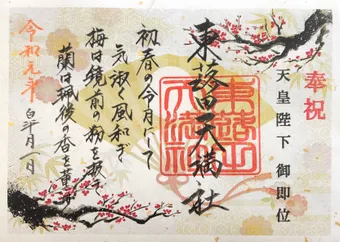 奉祝
天皇陛下 御即位
東落田天満社
初春の令月にして
気淑く風和ぎ
梅は鏡前の粉を披き
蘭は珮後の香を薫す
令和元年